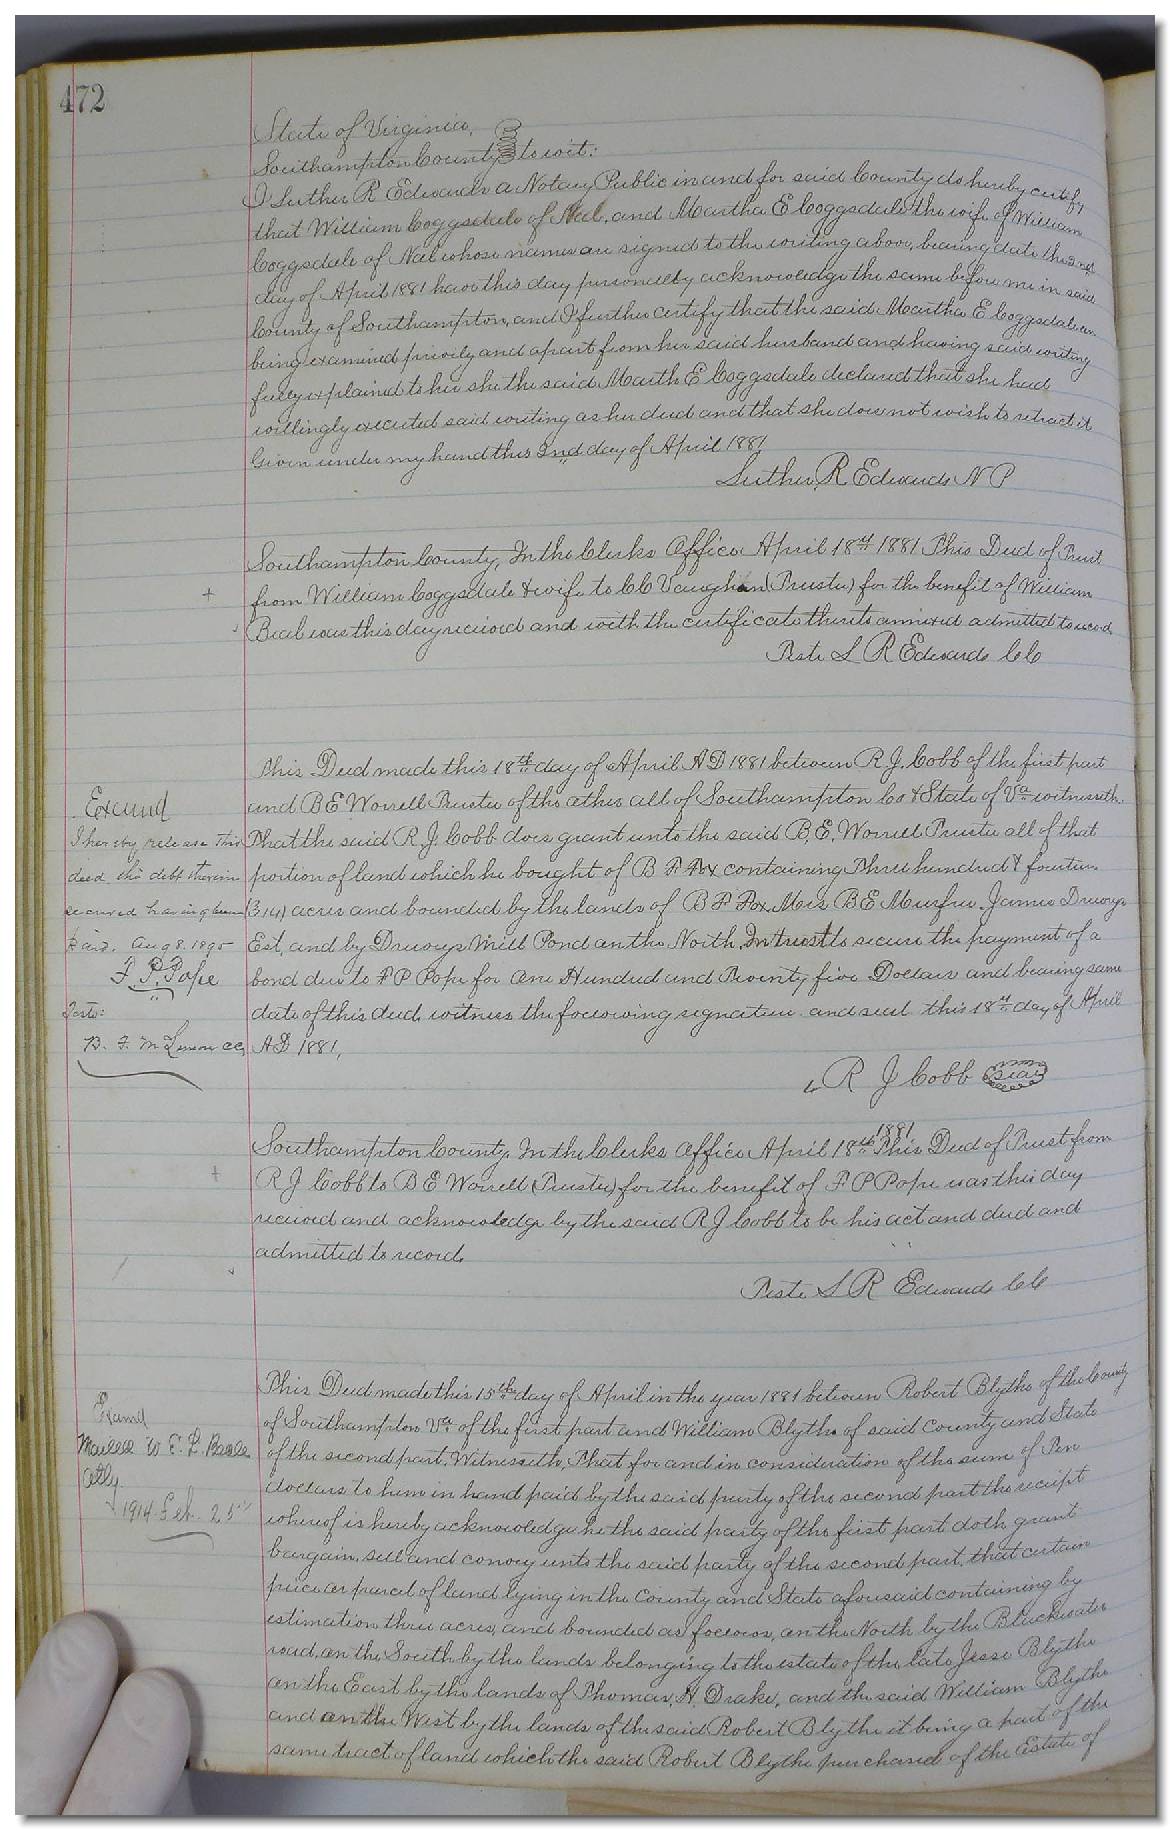 472
State of Virginia,
Southampton County to wit:
I Luther R Edwards a Notary Public in and for said County do hereby certify
that William Coggsdale of Neal, and Martha E Coggsdale the wife of William
Coggsdale of Neal whose names are signed to the writing above, bearing date the 2nd
day of April 1881 have this day personally acknowledge the same before me in said
County of Southampton, and I further certify that the said Martha E Coggsdale
being examined privily and apart from her said husband and having said writing
fully explained to her she the said Marth E Coggsdale declared that she had
willingly executed said writing as her deed and that she does not wish to retract it
Given under my hand this 2nd day of April 1881
Luther R Edwards N P
Southampton County, In the Clerks Office April 18th 1881 This Deed of Trust
from William Coggsdale & wife to CC Vaughan (Trustee) for the benefit of William
Beal was this day received and with the certificate thereto annexed admitted to record
Teste L R Edwards CC
This Deed made this 18th day of April AD 1881 between R J. Cobb of the first part
and B E Worrell Trustee of the other all of Southampton Co & State of Va witnesseth.
That the said R. J. Cobb does grant unto the said B. E. Worrell Trustee all of that
portion of land which he bought of B F Fox containing Three hundred & fourteen
(314) acres and bounded by the lands of B F Fox, Mrs B E Murfree, James Drewrys
Est, and by Drewrys Mill Pond on the North. In trust to secure the payment of a
bond due to F P Pope for One Hundred and Twenty five Dollars and bearing same
date of this deed, witness the following signature and seal this 18th day of April
AD 1881,
R J Cobb Seal
Examd
I hereby release this
deed the debt therein
secured having been
paid. Aug 8. 1895
F. P. Pope
Teste:
B. F. McLemore CC
Southampton County, In the Clerks Office April 18th 1881 This Deed of Trust from
R J Cobb to B E Worrell (Trustee) for the benefit of F P Pope was this day
received and acknowledge by the said R J Cobb to be his act and deed and
admitted to record
Teste L R Edwards CC
Examd
Mailed to E. L. Beale
Atty
1914 Feb. 25th
This Deed made this 15th day of April in the year 1881 between Robert Blythe of the County
of Southampton Va of the first part and William Blythe of said County and State
of the second part. Witnesseth, That for and in consideration of the sum of Ten
dollars to him in hand paid by the said party of the second part the receipt
whereof is hereby acknowledge he the said party of the first part doth grant
bargain, sell and convey unto the said party of the second part, that certain
piece or parcel of land lying in the County and State aforesaid containing by
estimation three acres, and bounded as follows, on the North by the Blackwater
road, on the South by the lands belonging to the estate of the late Jesse Blythe
on the East by the lands of Thomas, H. Drake, and the said William Blythe
and on the West by the lands of the said Robert Blythe it being a part of the
same tract of land which the said Robert Blythe purchased of the Estate of